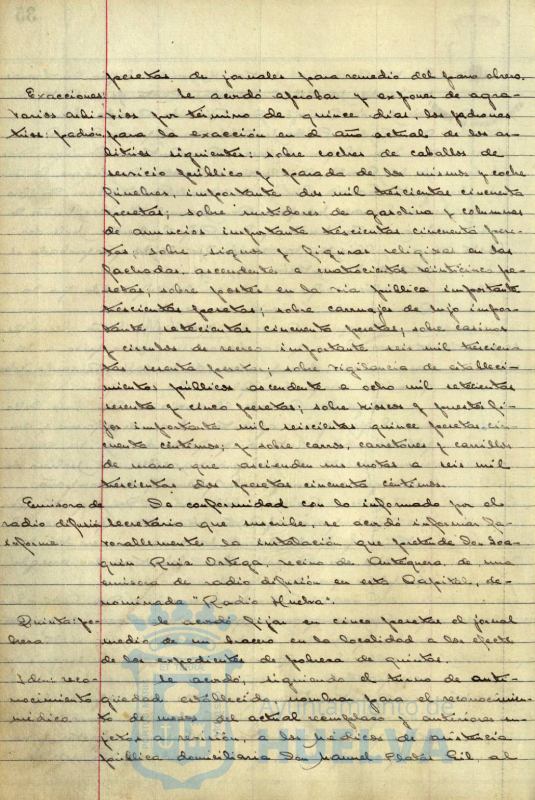 pesetas de jornales para remedio del paro obrero.
Exacciones: Se acordó aprobar y exponer de agra-
varios arbi- vios por término de quince días, los padrones
trios: padrón para la exacción en el año actual de los ar-
bitrios siguientes: sobre coches de caballos de
servicio público y parada de los mismos y coche
fúnebres, importante dos mil trescientas cincuenta
pesetas; sobre surtidores de gasolina y columnas
de anuncios importante trescientas cincuenta pese-
tas; sobre signos y figuras religiosas en las
fachadas, ascendente a cuatrocientas veinticinco pe-
setas; sobre postes en la vía pública importante
trescientas pesetas; sobre carruajes de lujo impor-
tante setecientas cincuenta pesetas; sobre casinos
y círculos de recreo importante seis mil trescien-
tas sesenta pesetas; sobre vigilancia de estableci-
mientos públicos ascendente a ocho mil setecientas
sesenta y cinco pesetas; sobre kioscos y puestos fi-
jos importante mil seiscientas quince pesetas cin-
cuenta céntimos; y sobre carros, carretones y carrillos
de mano, que ascienden sus cuotas a seis mil
trescientas dos pesetas cincuenta céntimos.
Emisora de De conformidad con lo informado por el
radio difusión Secretario que suscribe, se acordó informar fa-
informe vorablemente la instalación que pretende Don Joa-
quín Ruiz Ortega, vecino de Antequera, de una
emisora de radio difusión en esta Capital, de-
nominada "Radio Huelva".
Quintas: po- Se acordó fijar en cinco pesetas el jornal
breza medio de un bracero en la localidad a los efectos
de los expedientes de pobreza de quintas.
Idem: reco- Se acordó, siguiendo el turno de anti-
nocimiento güedad establecido nombrar para el reconocimien-
médico to de mozos del actual reemplazo y anteriores su-
jetos a revisión, a los médicos de asistencia
pública domiciliaria Don Manuel Gil, al
Ayuntamiento de
HUELVA